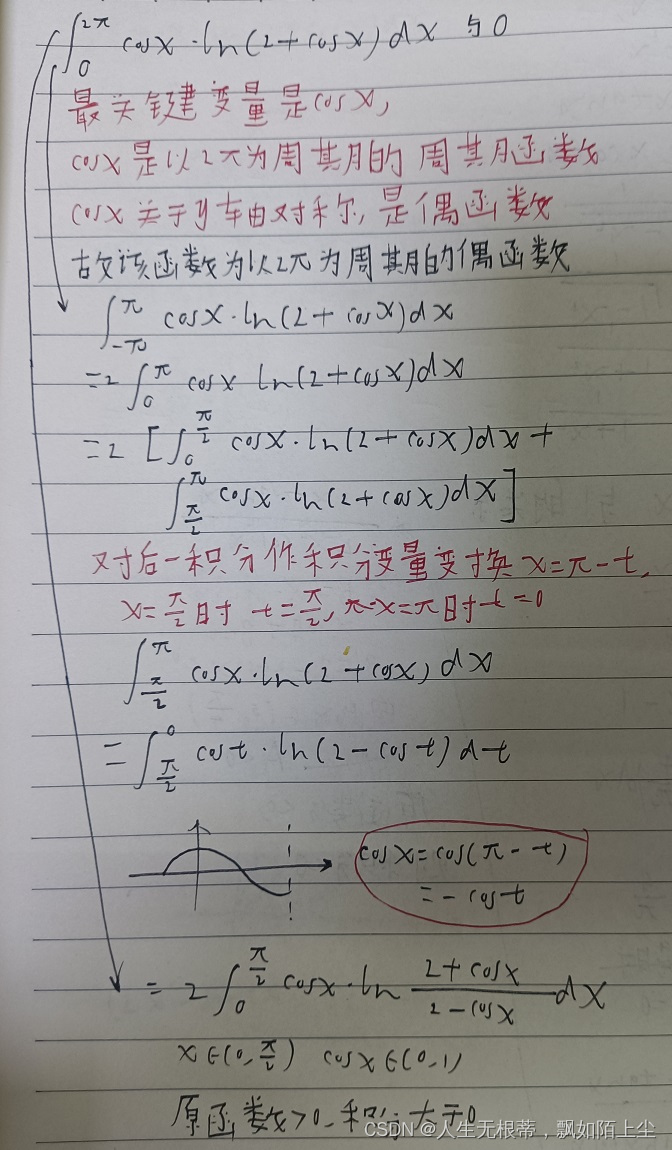 ∫₀^{2π} cosx·ln(2+cosx)dx 与0
最关键变量是cosx,
cosx是以2π为周期的周期函数
cosx关于y轴对称,是偶函数
故该函数为以2π为周期的偶函数
∫_{-π}^{π} cosx·ln(2+cosx)dx
=2∫₀^{π} cosx ln(2+cosx)dx
=2[∫₀^{π/2} cosx·ln(2+cosx)dx+
∫_{π/2}^{π} cosx·ln(2+cosx)dx]
对后一积分作积分变量变换x=π-t,
x=π/2时 t=π/2, x=π时t=0
∫_{π/2}^{π} cosx·ln(2+cosx)dx
=∫_{π/2}^{0} cost·ln(2-cost)dt
cosx=cos(π-t)
=-cost
=2∫₀^{π/2} cosx·ln (2+cosx)/(2-cosx) dx
x∈(0,π/2) cosx∈(0,1)
原函数>0,积分大于0
CSDN @人生无根蒂，飘如陌上尘